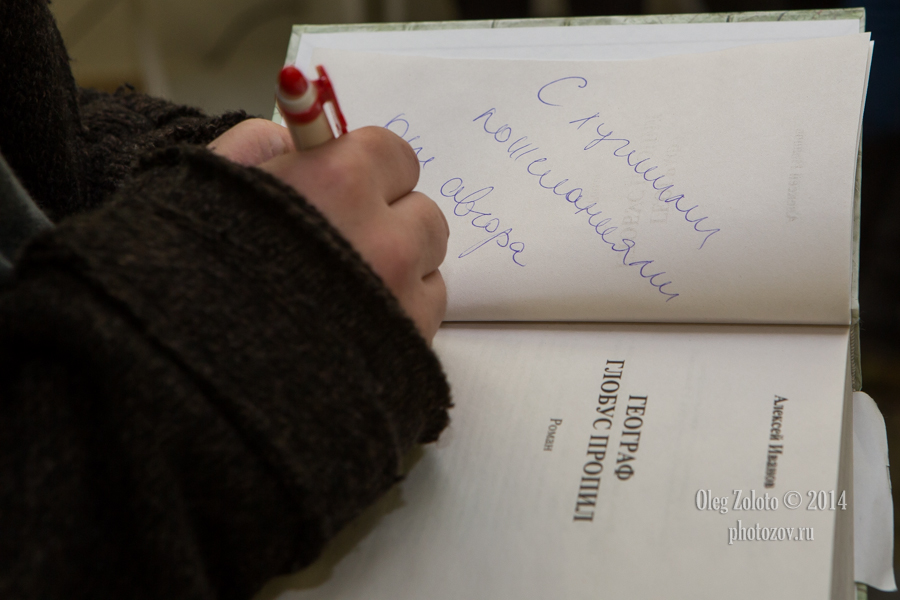 С лучшими
пожеланиями
от автора
Алексей Иванов
ГЕОГРАФ
ГЛОБУС ПРОПИЛ
Роман
Oleg Zoloto © 2014
photozov.ru